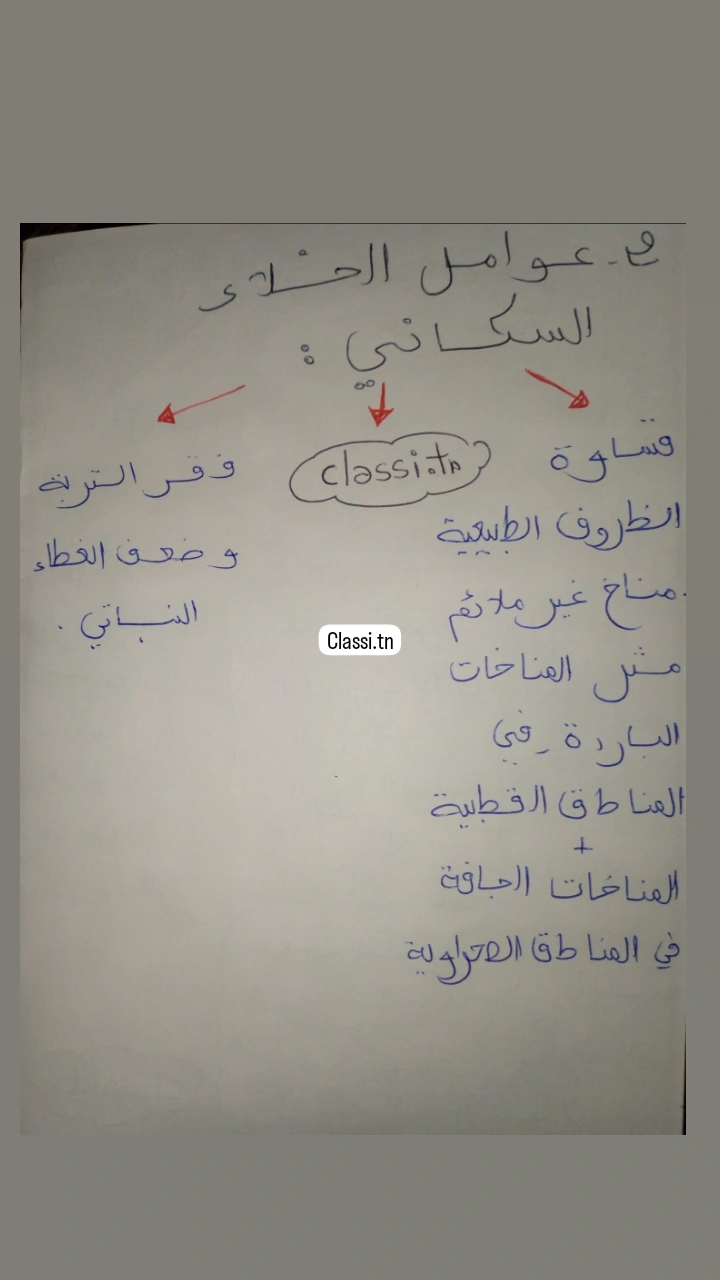 2- عوامل الخلاء
السكاني :
قساوة
الظروف الطبيعية
. مناخ غير ملائم
مثل المناخات
الباردة في
المناطق القطبية
+
المناخات الجافة
في المناطق الصحراوية
classi.tn
Classi.tn
فقر التربة
و ضعف الغطاء
النباتي .